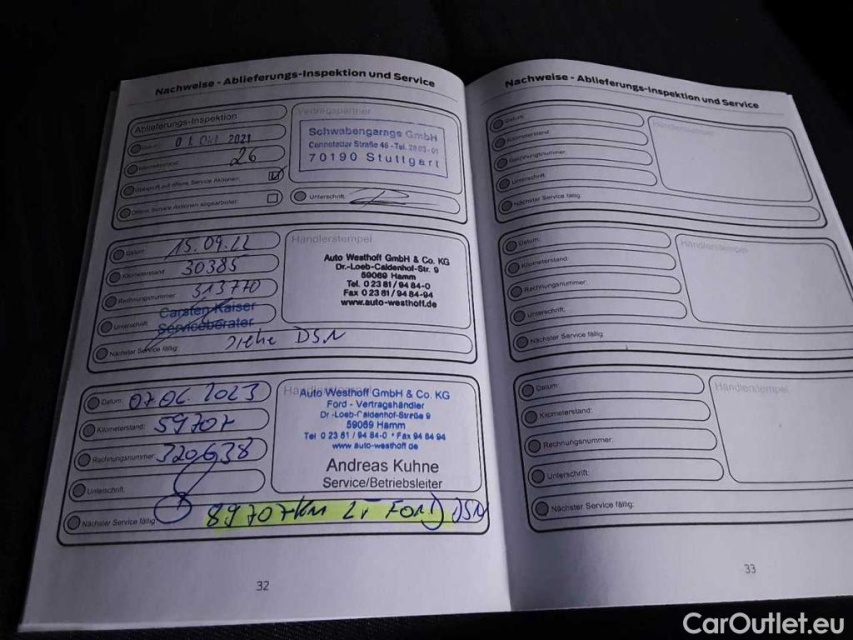 Nachweise - Ablieferungs-Inspektion und Service
Ablieferungs-Inspektion
01. Okt. 2021
26
Überprüft auf offene Service Aktionen:
Offene Service Aktionen abgearbeitet:
Vertragspartner
Schwabengarage GmbH
Cannstatter Straße 46 - Tel. 28 03 - 01
70190 Stuttgart
Unterschrift:
Datum: 15.09.22
Kilometerstand: 30385
Rechnungsnummer: 313770
Unterschrift: Carsten Kaiser
Serviceberater
Nächster Service fällig: siehe DSN
Händlerstempel
Auto Westhoff GmbH & Co. KG
Dr.-Loeb-Caldenhof-Str. 9
59069 Hamm
Tel. 0 23 81 / 94 84-0
Fax 0 23 81 / 94 84-94
www.auto-westhoff.de
Datum: 07.06.2023
Kilometerstand: 59707
Rechnungsnummer: 320638
Unterschrift:
Nächster Service fällig: 89707km Lt FORD DSN
Händlerstempel
Auto Westhoff GmbH & Co. KG
Ford - Vertragshändler
Dr.-Loeb-Caldenhof-Straße 9
59069 Hamm
Tel 0 23 81 / 94 84-0 * Fax 94 84 94
www.auto-westhoff.de
Andreas Kuhne
Service/Betriebsleiter
32
Nachweise - Ablieferungs-Inspektion und Service
Datum:
Kilometerstand:
Rechnungsnummer:
Unterschrift:
Nächster Service fällig:
Händlerstempel
Datum:
Kilometerstand:
Rechnungsnummer:
Unterschrift:
Nächster Service fällig:
Händlerstempel
Datum:
Kilometerstand:
Rechnungsnummer:
Unterschrift:
Nächster Service fällig:
Händlerstempel
33
CarOutlet.eu